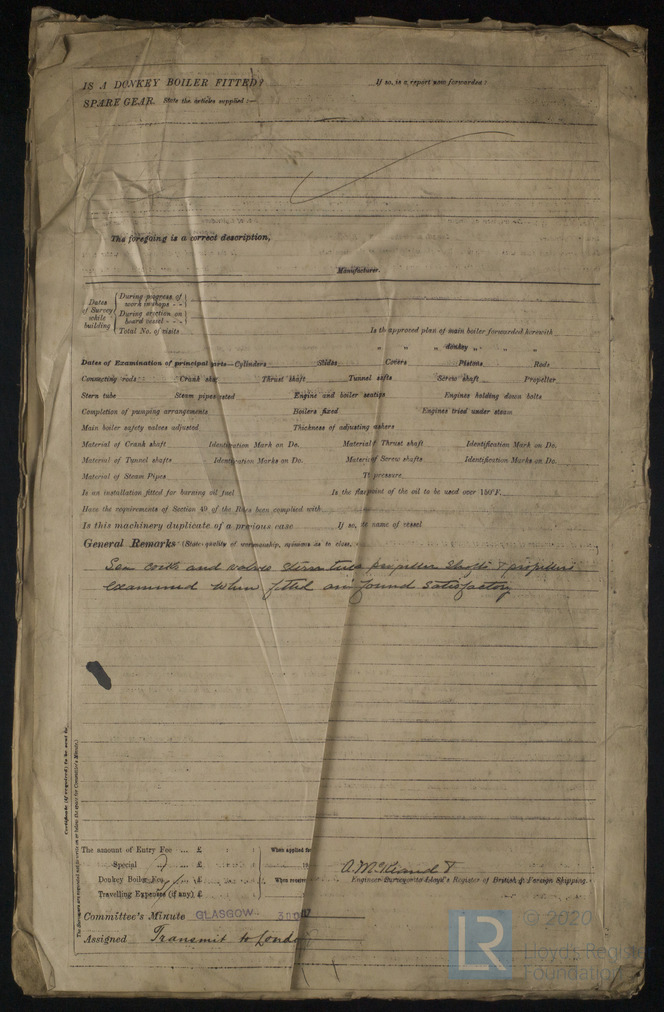 IS A DONKEY BOILER FITTED? If so, is a report now forwarded?
SPARE GEAR. State the articles supplied:—
The foregoing is a correct description,
Manufacturer.
Dates of Survey while building
During progress of work in shops - -
During erection on board vessel - - -
Total No. of visits
Is the approved plan of main boiler forwarded herewith
" " " donkey " " "
Dates of Examination of principal parts—Cylinders Slides Covers Pistons Rods
Connecting rods Crank shaft Thrust shaft Tunnel shafts Screw shaft Propeller
Stern tube Steam pipes tested Engine and boiler seatings Engines holding down bolts
Completion of pumping arrangements Boilers fixed Engines tried under steam
Main boiler safety valves adjusted Thickness of adjusting washers
Material of Crank shaft Identification Mark on Do. Material of Thrust shaft Identification Mark on Do.
Material of Tunnel shafts Identification Marks on Do. Material of Screw shafts Identification Marks on Do.
Material of Steam Pipes Test pressure
Is an installation fitted for burning oil fuel Is the flash point of the oil to be used over 150°F.
Have the requirements of Section 49 of the Rules been complied with
Is this machinery duplicate of a previous case If so, state name of vessel
General Remarks (State quality of workmanship, opinions as to class,
Sea cocks and valves stern tubes propeller shafts & propellers
examined when fitted and found satisfactory
Certificate (if required) to be sent to
The Surveyors are requested not to write on or below the space for Committee's Minute.
The amount of Entry Fee ... £ When applied for
Special ... £
Donkey Boiler Fee ... £ When received
Travelling Expenses (if any) £
Engineer Surveyor to Lloyd's Register of British & Foreign Shipping.
Committee's Minute GLASGOW
Assigned Transmit to London
LR
© 2020
Lloyd's Register
Foundation